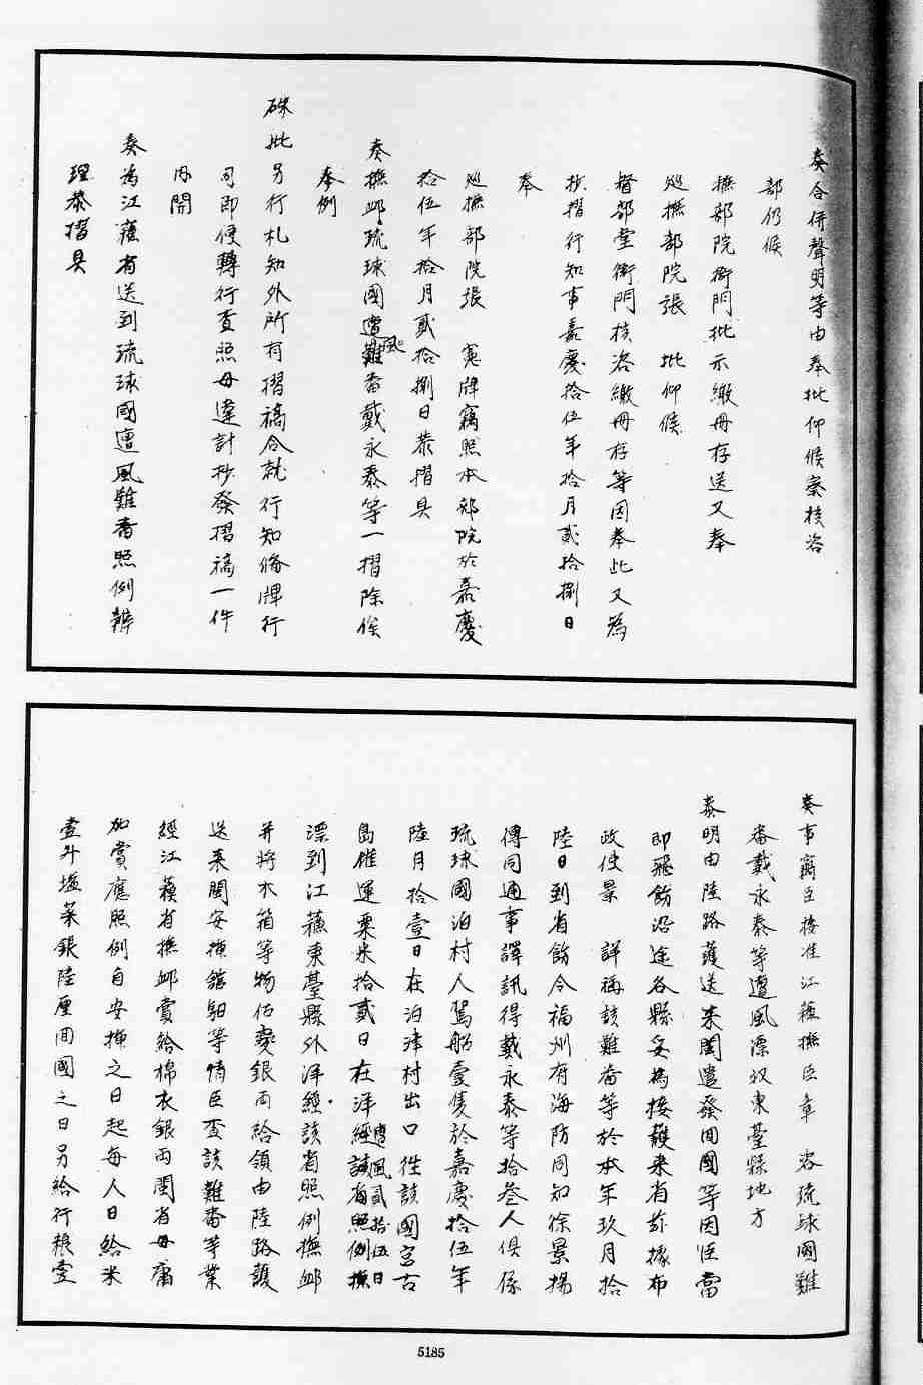 奏合併聲明等由奉批仰候奏核咨
部仍候
撫部院衙門批示繳冊存送又奉
巡撫部院張 批仰候
督部堂衙門核咨繳冊存等因奉此又為
抄摺行知事嘉慶拾伍年拾月貳拾捌日
奉
巡撫部院張 憲牌竊照本部院於嘉慶
拾伍年拾月貳拾捌日恭摺具
奏撫卹琉球國遭風難番戴永泰等一摺除俟
奉例
硃批另行札知外所有摺稿合就行知備牌行
司即便轉行查照毋違計抄發摺稿一件
內開
奏為江蘇省送到琉球國遭風難番照例辦
理恭摺具
奏事竊臣接准江蘇撫臣章 咨琉球國難
番戴永泰等遭風漂收東臺縣地方
奏明由陸路護送來閩遣發回國等因臣當
即飛飭沿途各縣妥為接護來省茲據布
政使景 詳稱該難番等於本年玖月拾
陸日到省飭令福州府海防同知徐景揚
傳同通事譯訊得戴永泰等拾叁人俱係
琉球國泊村人駕船壹隻於嘉慶拾伍年
陸月拾壹日在泊津村出口往該國宮古
島催運粟米拾貳日在洋遭風貳拾伍日經該省照例撫
漂到江蘇東臺縣外洋經該省照例撫卹
并將木箱等物估變銀兩給領由陸路護
送來閩安插館驛等情臣查該難番等業
經江蘇省撫卹賞給棉衣銀兩閩省毋庸
加賞應照例自安插之日起每人日給米
壹升塩菜銀陸厘回國之日另給行糧壹
5185